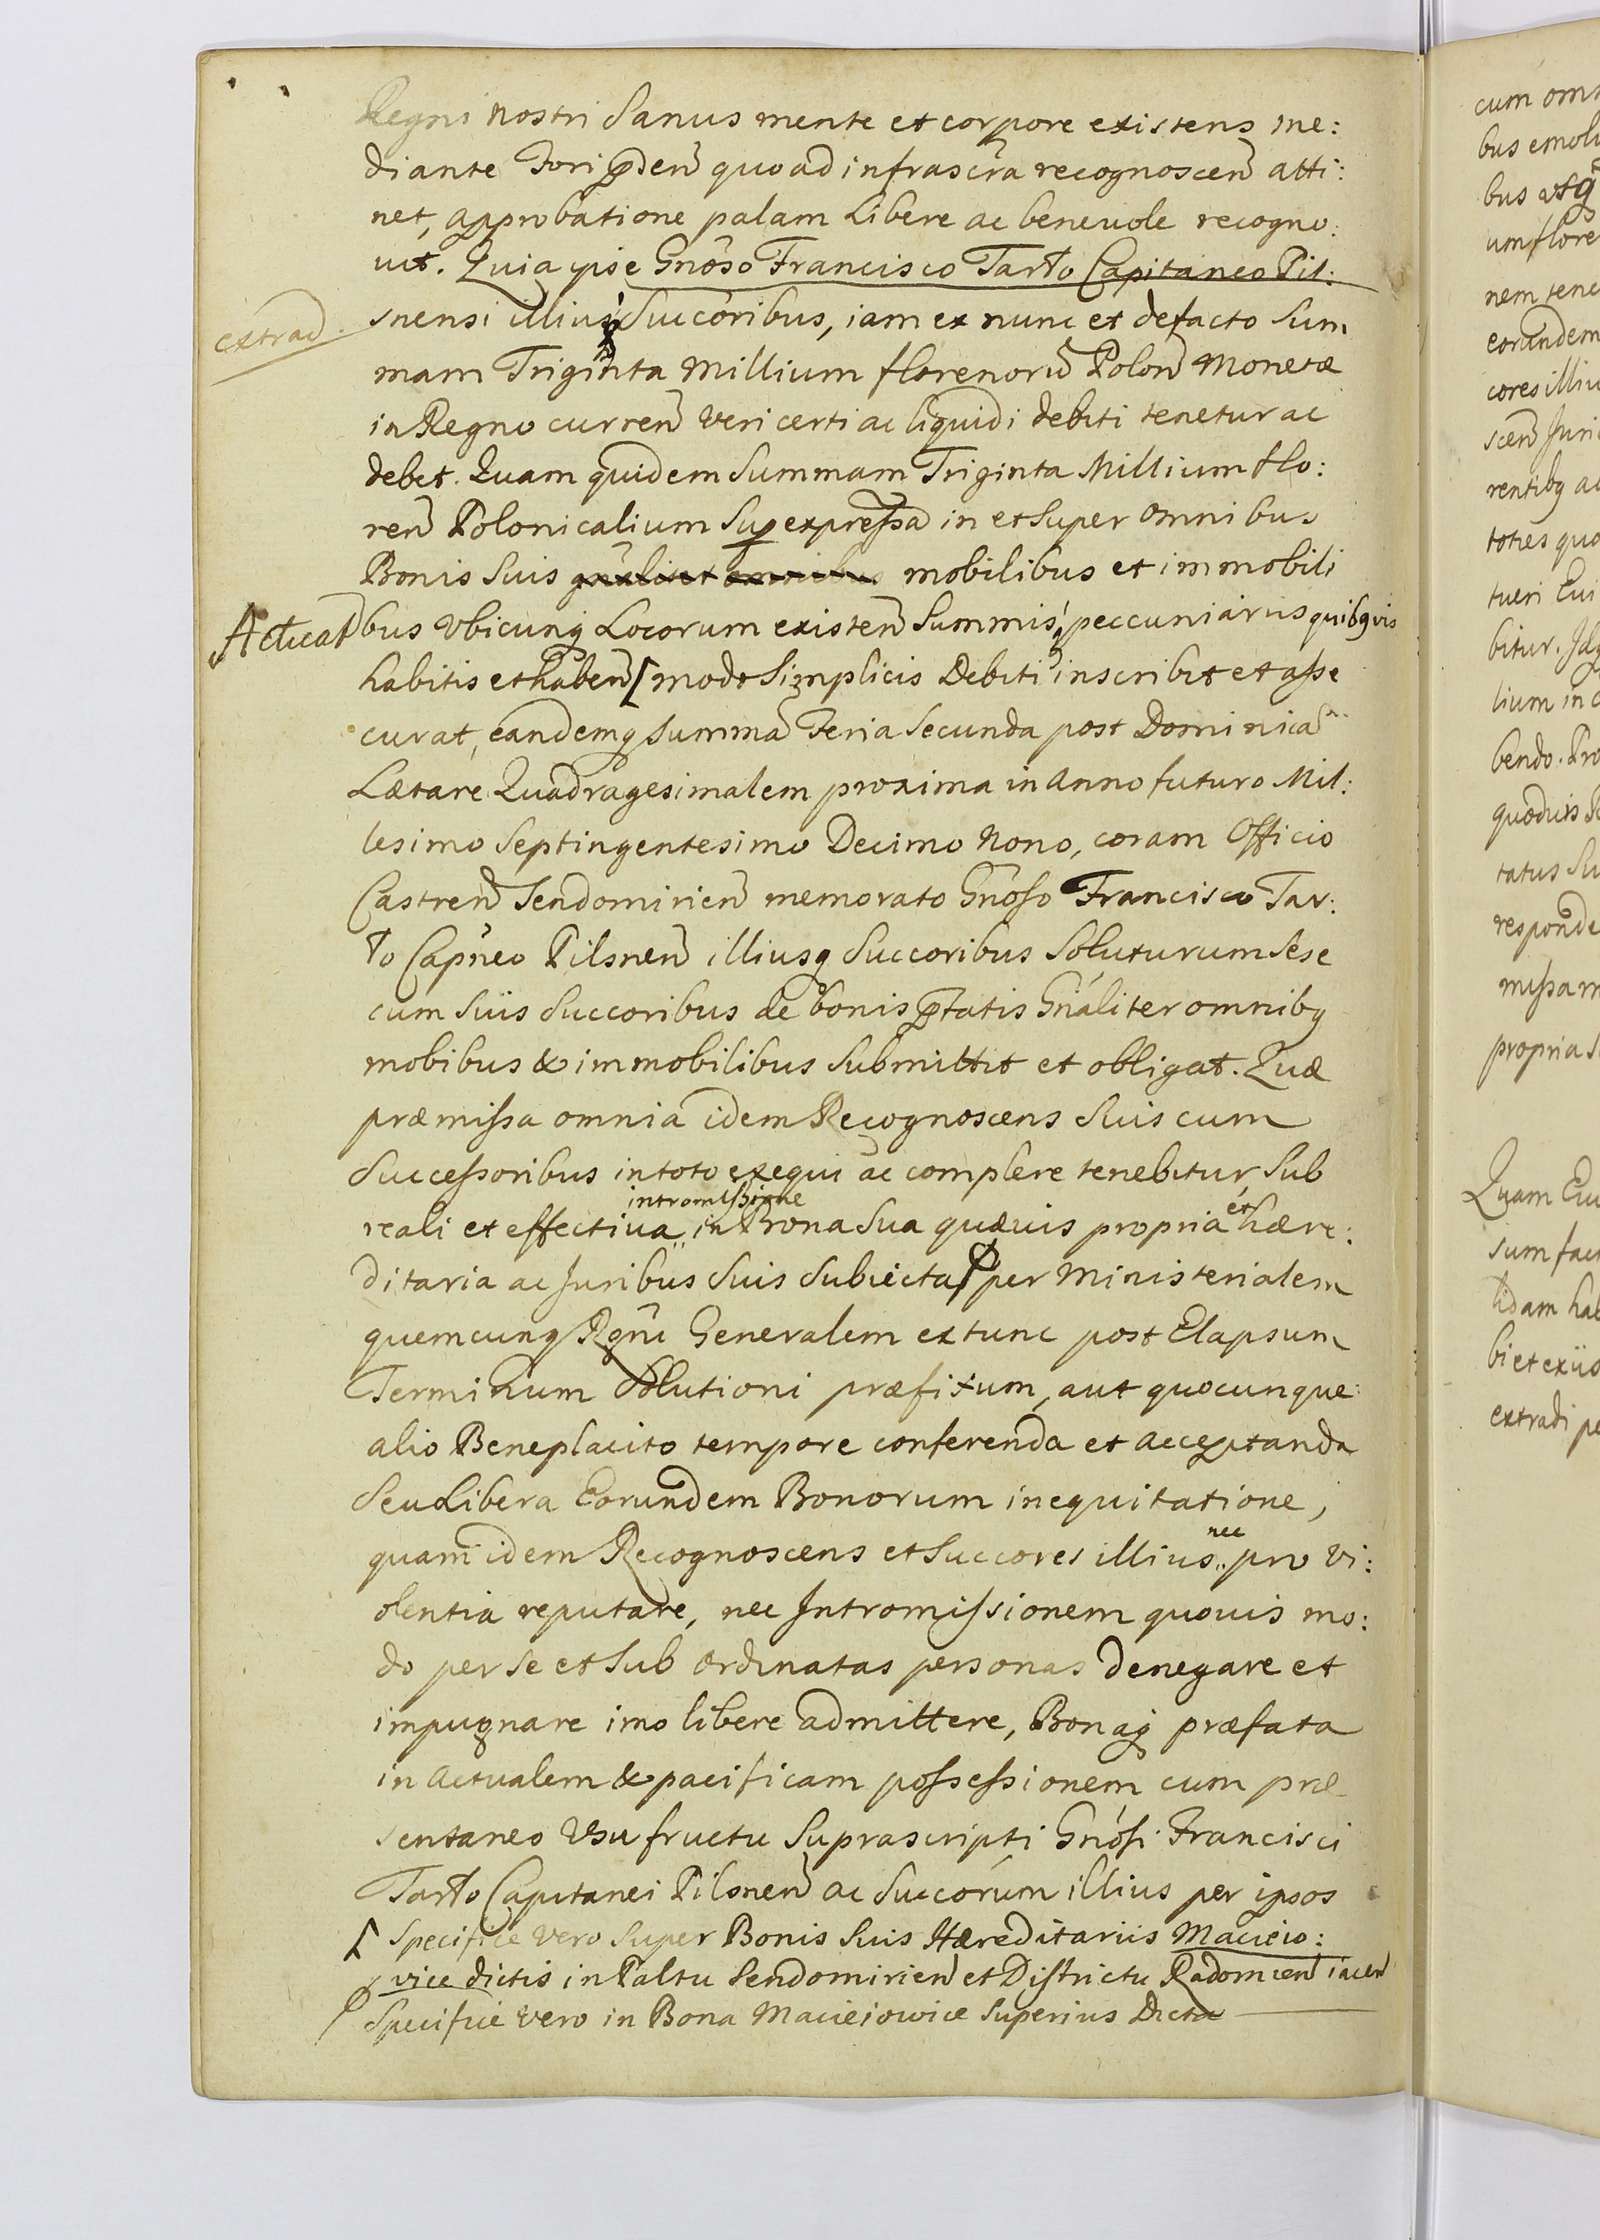 Regni nostri Sanus mente et corpore existens me:
diante Fori p̄den̄ quoad infrascr̄a recognoscen̄ atti:
net, approbatione palam Libere ac beneuole recogno:
uit. Quia ipse Gnōso Francisco Tarło Capitaneo Pil:
extrad.
snensi illiusq̢ Succoribus, iam ex nunc et defacto Sum
mam Triginta Millium florenorū Polon̄ Monetæ
in Regno curren̄ veri certi ac liquidi debiti tenetur ac
debet. Quam quidem Summam Triginta Millium flo:
ren̄ Polonicalium Sup̱expressā in et Super omnibus
Bonis Suis mobilibus et immobili
Acticat̄
bus vbicunq̢ Locorum existen̄ Summisq̢ peccuniariis quibq̢uis
habitis et haben̄ [ modo Simplicis Debiti inscribit et asse
curat, eandemq̢ Summā Feria Secunda post Dominicā
Lætare Quadragesimalem proxima in Anno futuro Mil:
lesimo Septingentesimo Decimo Nono, coram Officio
Castren̄ Sendomirien̄ memorato Gnōso Francisco Tar:
ło Capn̄eo Pilsnen̄ illiusq̢ Succoribus Soluturum Sese
cum Suis Succoribus de bonis p̄tatis Gnāliter omnibq̢
mobibus & immobilibus Submittit et obligat. Quæ
præmissa omnia idem Recognoscens Suis cum
Successoribus in toto exequi ac complere tenebitur, Sub
intromissione
reali et effectiua .. in Bona Sua quæuis propria et hære:
ditaria ac Juribus Suis Subiecta ꟼ per Ministerialem
quemcunq̢ Rgn̄i Generalem extunc post Elapsum
Terminum Solutioni præfixum, aut quocunque
alio Beneplacito tempore conferenda et acceptanda
Seu Libera Eorundem Bonorum inequitatione,
nec
quam idem Recognoscens et Succores illius .. pro vi:
olentia reputare, nec Intromissionem quouis mo:
do per se et Sub ordinatas personas denegare et
impugnare imo libere admittere, Bonaq̢ præfata
in Actualem & pacificam possessionem cum præ
sentaneo Vsufructu Suprascripti Gnōsi Francisci
Tarło Capitanei Pilsnen̄ ac Succorum illius per ipsos
[ Specifice vero Super Bonis Suis Hæreditariis Macieio:
wice dictis in Paltu Sendomirien̄ et Districtu Radomien̄ iacen̄
ꟼ Specifice vero in Bona Macieiowice Superius Dicta
cum om
bus emol
bus vsq̢
um flore
nem tene
eorundem
cores illiu
scen̄ Juri
rentibq̢ ac
toties quo
tueri Eui
bitur. Idq̢
lium in
bendo. Pro
quoduis
tatus Su
responde
missam
propria
Quam Eu
sum fac
lidam hab
bi et exiis
extradi pe